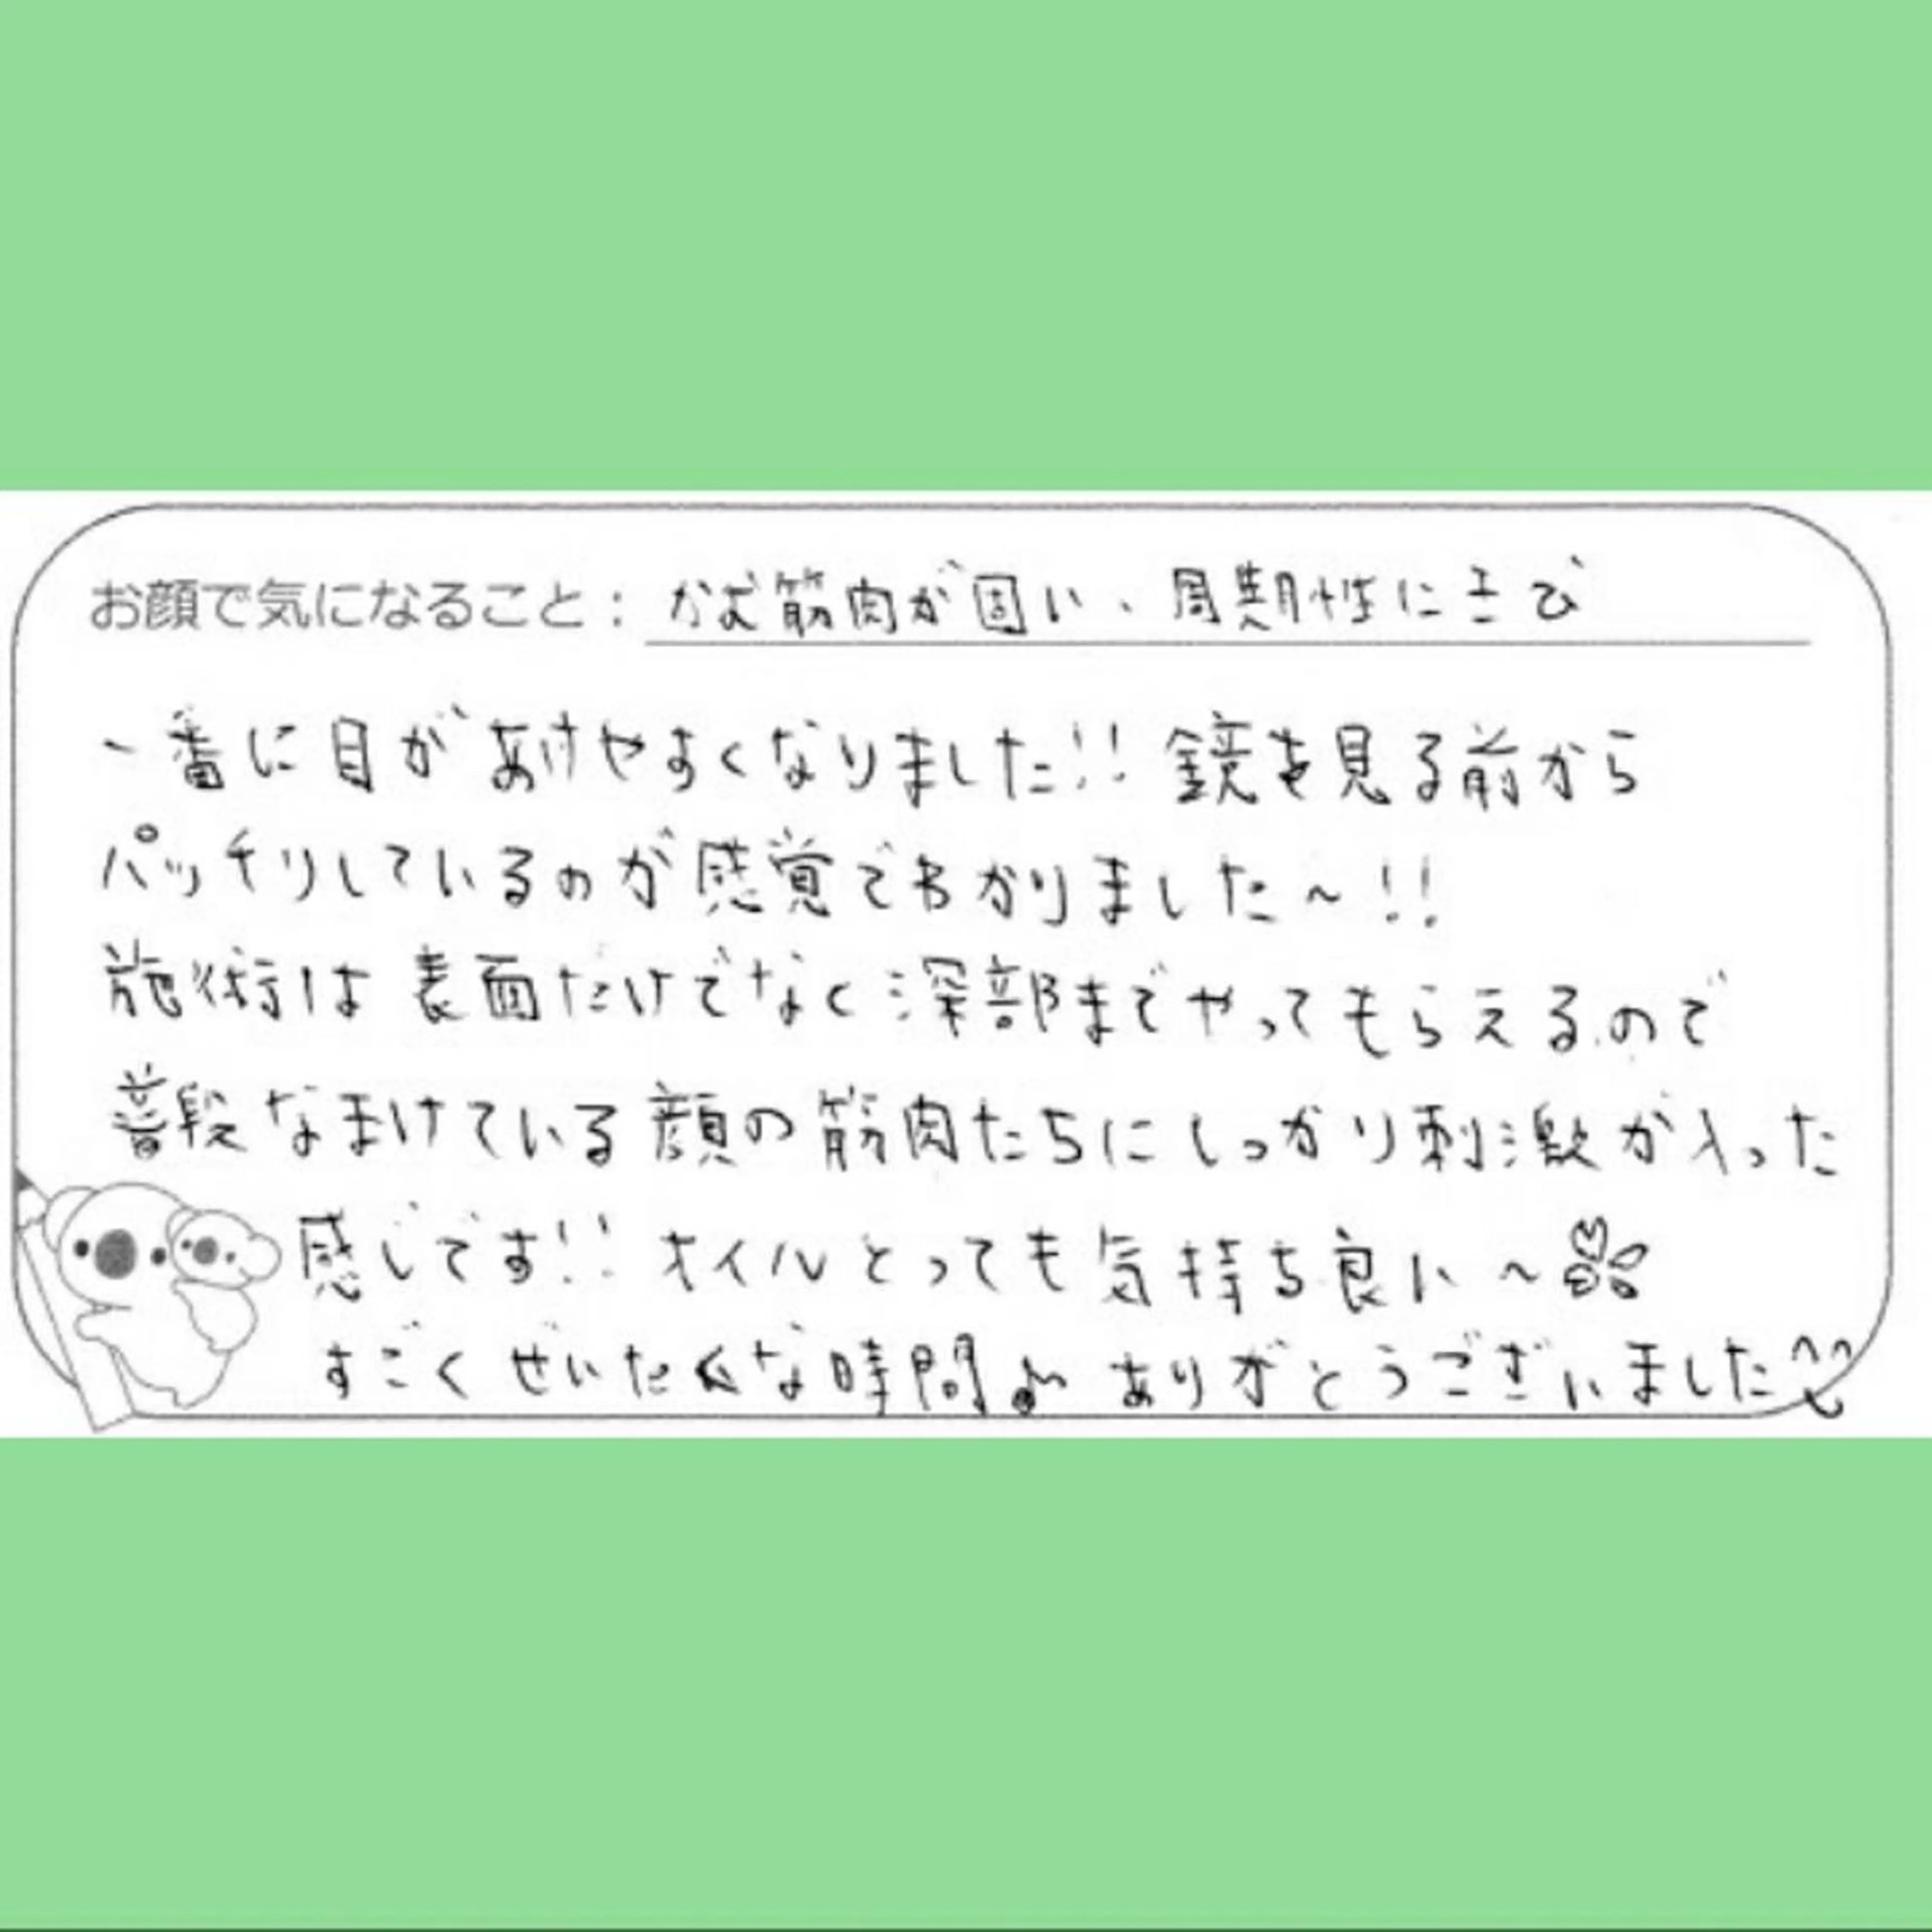 お顔で気になること: かむ筋肉が固い、周期性にきび
一番に目があけやすくなりました!! 鏡を見る前から
パッチリしているのが感覚でわかりました~!!
施術は表面だけでなく深部までやってもらえるので
普段なまけている顔の筋肉たちにしっかり刺激が入った
感じです!! オイルとっても気持ち良い~
すごくぜいたくな時間♪ ありがとうございました